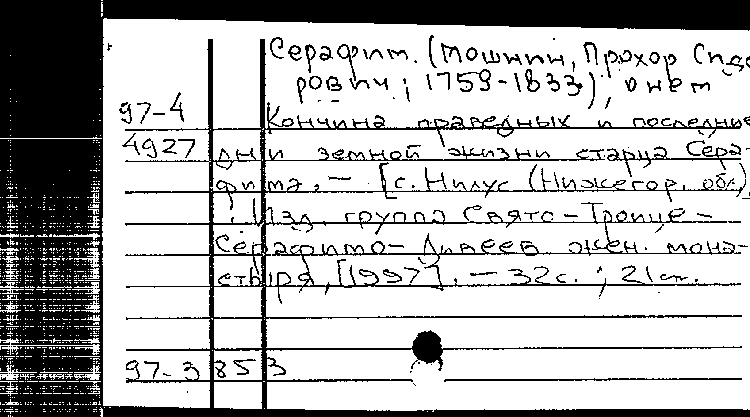 Серафим. (Мошнин, Прохор Сидо
рович; 1759-1833); о нем
97-4 Кончина праведных и последние
4927 дни земной жизни старца Сера-
фима. — [с. Нилус (Нижегор. обл.)
: Изд. группа Свято-Троице-
Серафимо-Дивеев жен. мона-
стыря, [1997]. — 32с. ; 21см.
97-3853